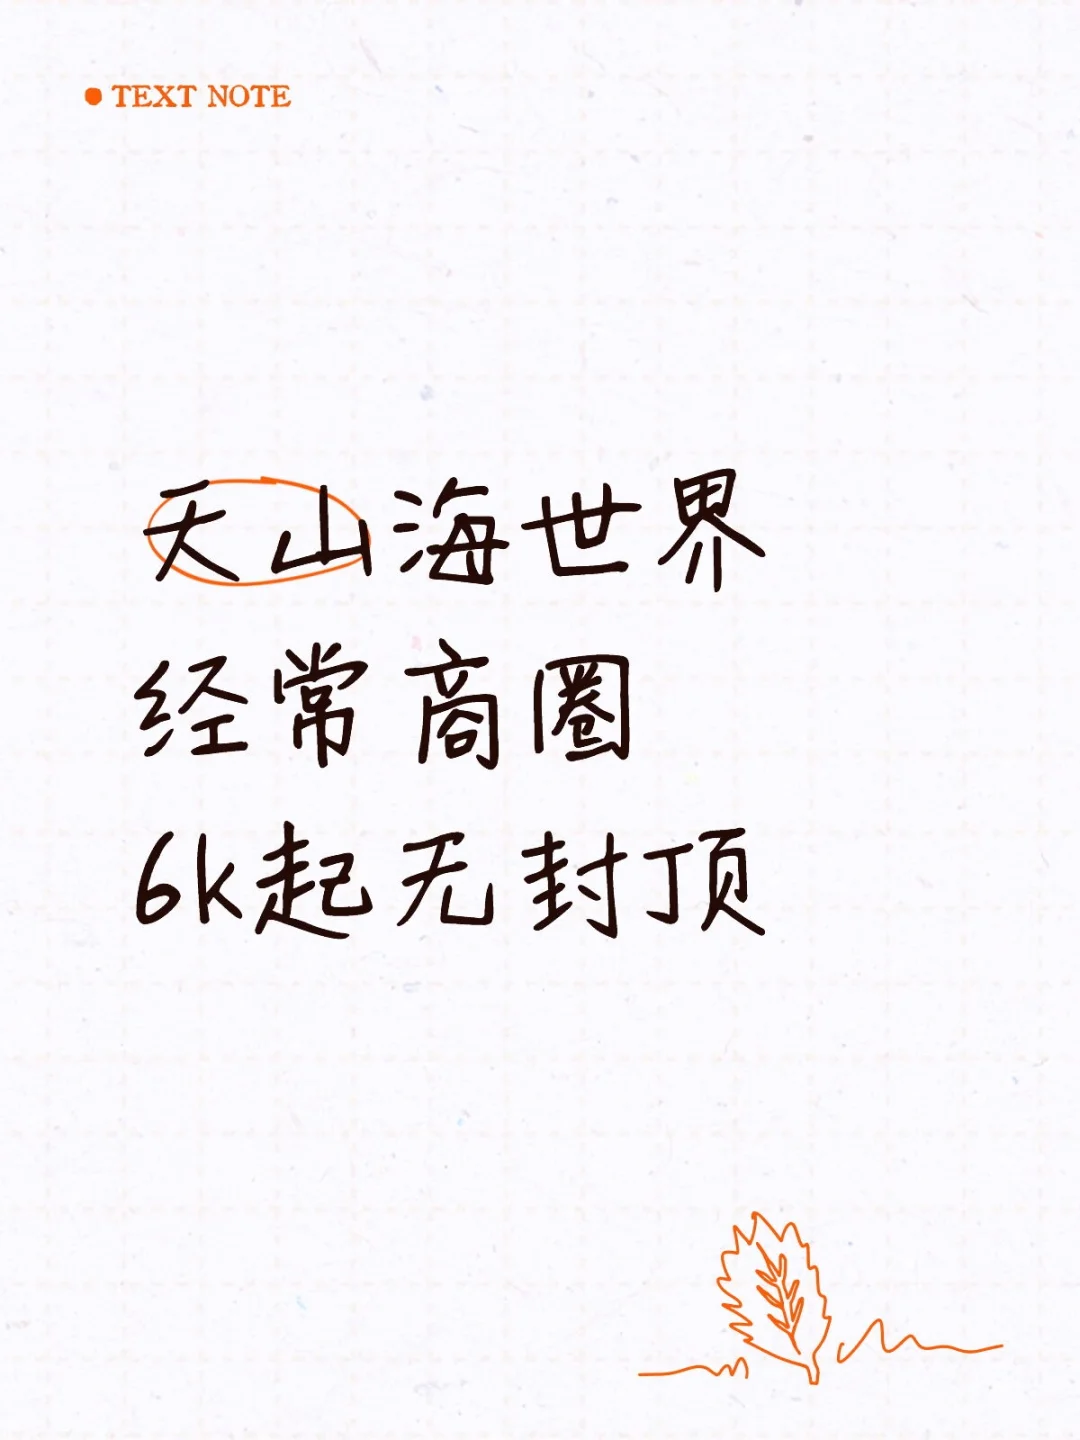 TEXT NOTE
天山海世界
经常商圈
6k起无封顶